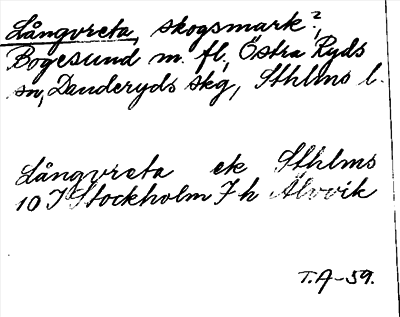 Långvreta, skogsmark?,
Bogesund m. fl., Östra Ryds
sn, Danderyds skg, Sthlms l.
Långvreta ek Sthlms
10 I Stockholm 7 h Älvvik
T.A-59.